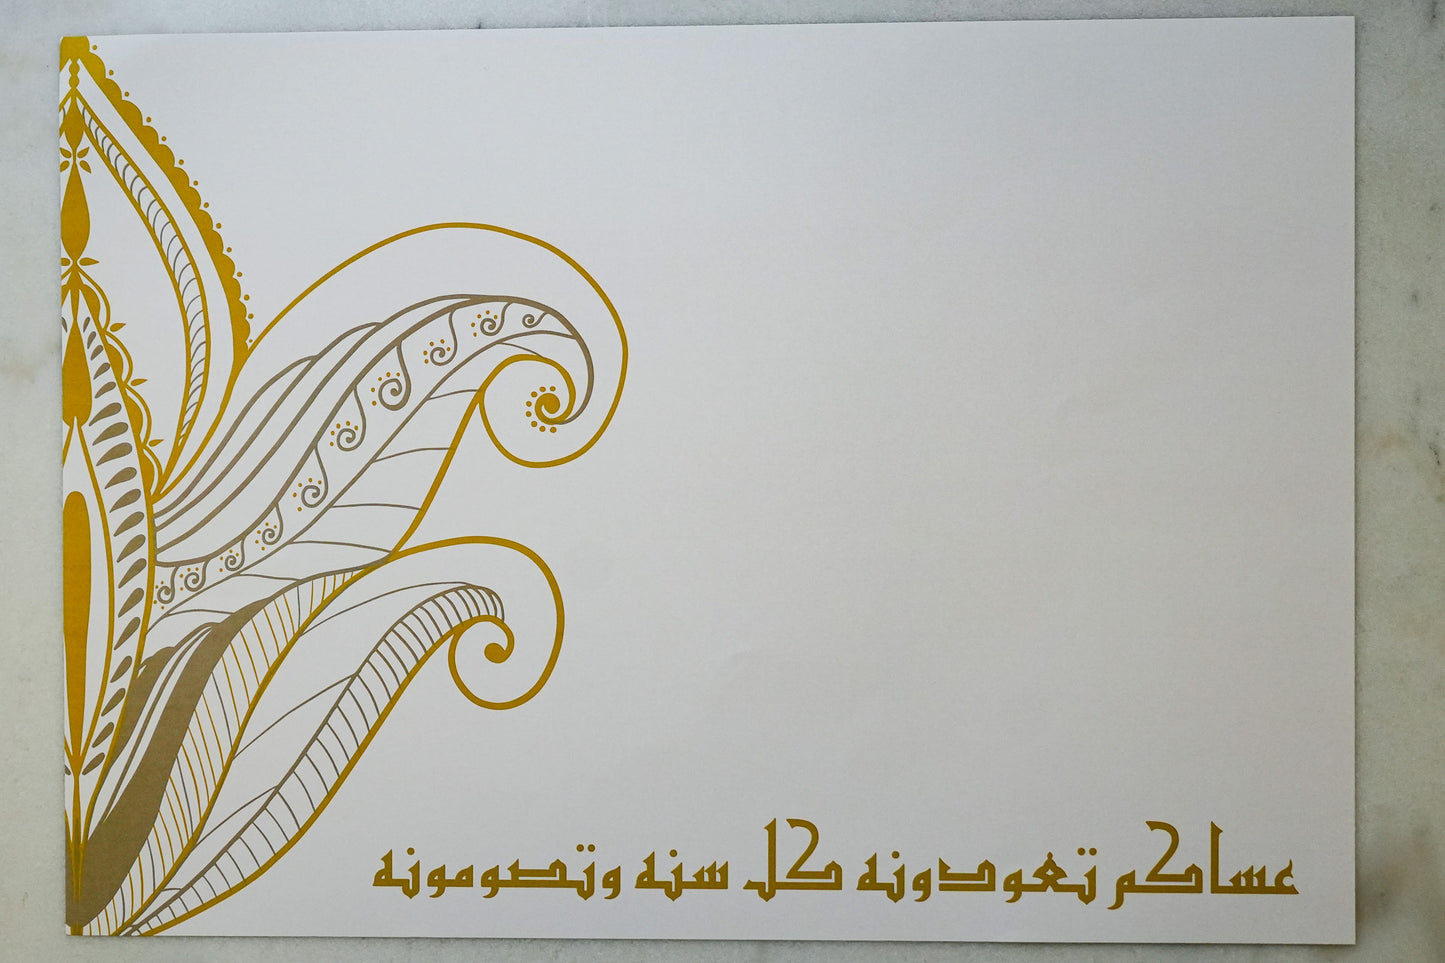 عساكم تعودونه كل سنه وتصومونه